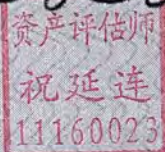 资产评估师
祝延连
11160023